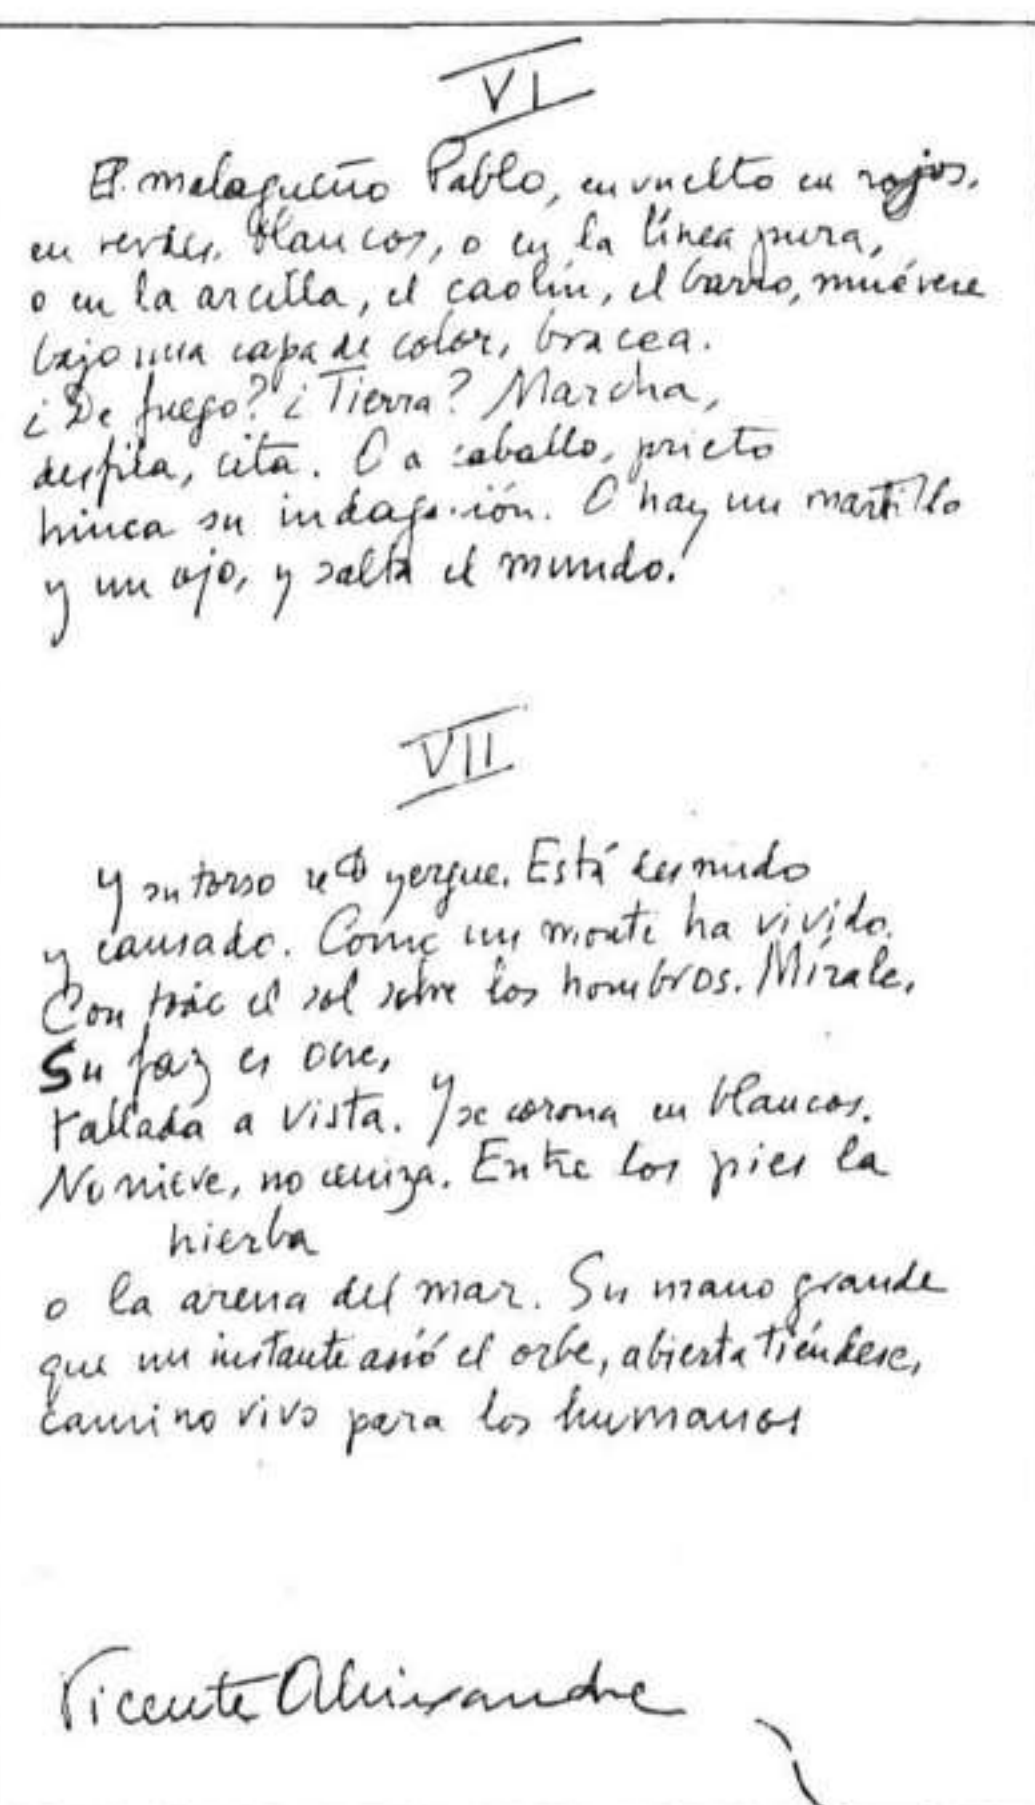 VI
El malagueño Pablo, envuelto en rojos,
en verdes, blancos, o en la línea pura,
o en la arcilla, el caolín, el barro, muévese
bajo una capa de color, bracea.
¿De fuego? ¿Tierra? Marcha,
desfila, cita. O a caballo, prieto
hinca su indagación. O hay un martillo
y un ojo, y salta el mundo.
VII
Y su torso se yergue. Está desnudo
y cansado. Como un monte ha vivido.
Con todo el sol sobre los hombros. Mírale,
Su faz es ocre,
tallada a vista. Y se corona en blancos.
No nieve, no ceniza. Entre los pies la
hierba
o la arena del mar. Su mano grande
que un instante asió el orbe, abierta tiéndese,
camino vivo para los humanos
Vicente Aleixandre